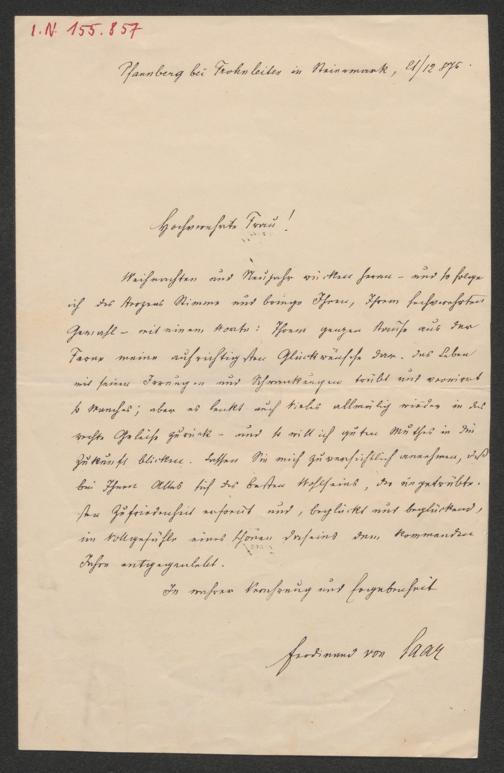 I.N. 155.857
Pfannberg bei Frohnleiten in Steiermark, 21/12 875.
Hochverehrte Frau!
Weihnachten und Neujahr rücken heran – und so folge
ich des Herzens Stimme und bringe Ihnen, Ihrem hochverehrten
Gemahl – mit einem Worte: Ihrem ganzen Hause aus der
Ferne meine aufrichtigsten Glückwünsche dar. Das Leben
mit seinen Irrungen und Schwankungen trübt und verwirrt
so Manches; aber es lenkt auch Vieles allmälig wieder in das
rechte Geleise zurück – und so will ich guten Muthes in die
Zukunft blicken. Lassen Sie mich zuversichtlich annehmen, daß
bei Ihnen Alles sich des besten Wohlseins, der ungetrübte-
sten Zufriedenheit erfreut und, beglückt und beglückend,
im Vollgefühle eines schönen Daseins dem kommenden
Jahre entgegenlebt.
In wahrer Verehrung und Ergebenheit
Ferdinand von Saar